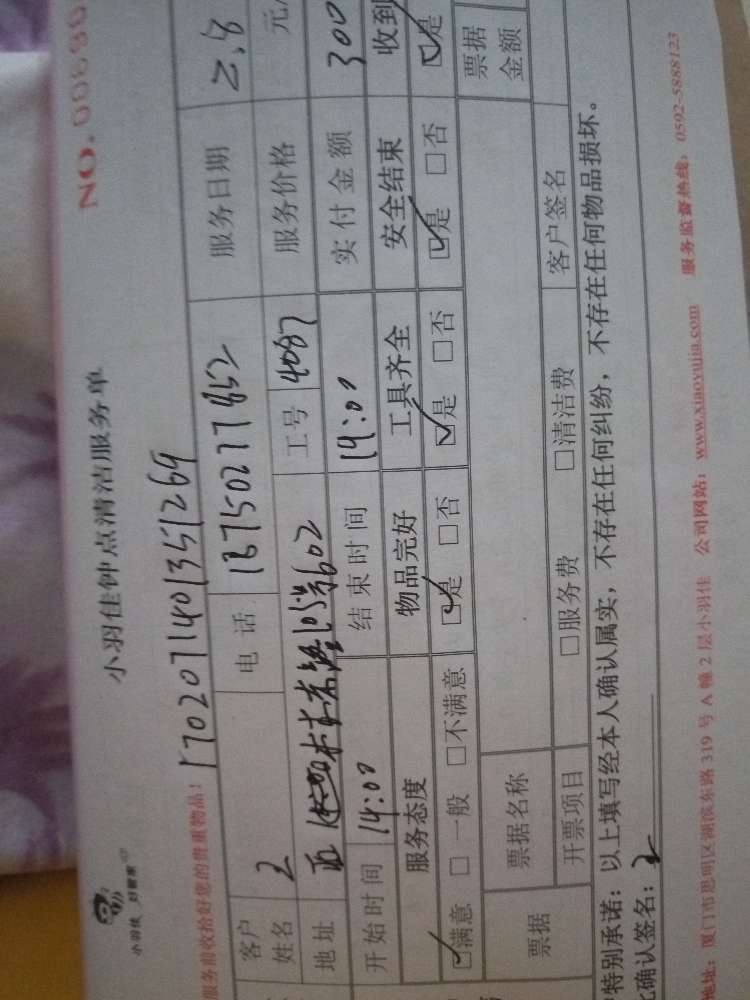 小羽佳 好管家
小羽佳钟点清洁服务单
NO.
服务前收拾好您的贵重物品!
1702071401351269
客户姓名
电 话 18750277852
服务日期 2.8
地址 105号602
工号 4087
服务价格 元/
开始时间 14:00
结束时间
实付金额 300
服务态度 物品完好 工具齐全 安全结束 收到
☑满意 □一般 □不满意 ☑是 □否 ☑是 □否 ☑是 □否 ☑是
票据 票据名称 票据金额
开票项目 □服务费 □清洁费 客户签名
特别承诺:以上填写经本人确认属实,不存在任何纠纷,不存在任何物品损坏。
确认签名:
地址:厦门市思明区湖滨东路 319 号 A 幢 2 层小羽佳 公司网站:www.xiaoyujia.com 服务监督热线:0592-5888123